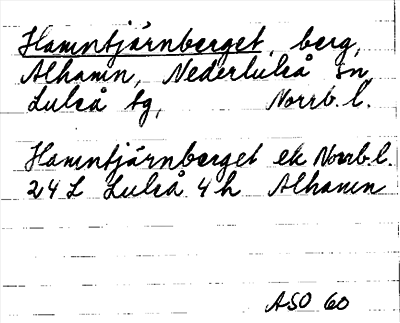 Hamntjärnberget, berg,
Alhamn, Nederluleå sn,
Luleå tg, Norrb. l.
Hamntjärnberget ek Norrb. l.
24 L Luleå 4h Alhamn
ASO 60